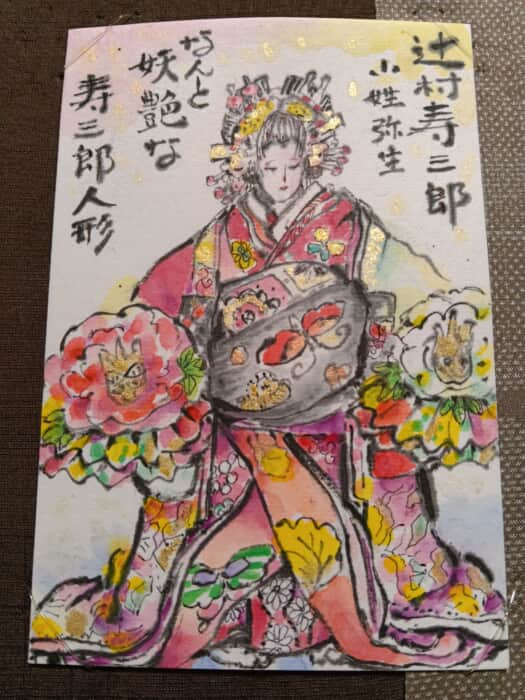 辻村寿三郎
小姓弥生
なんと
妖艶な
寿三郎人形